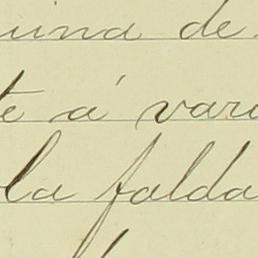 uina de
te á vari
la falda